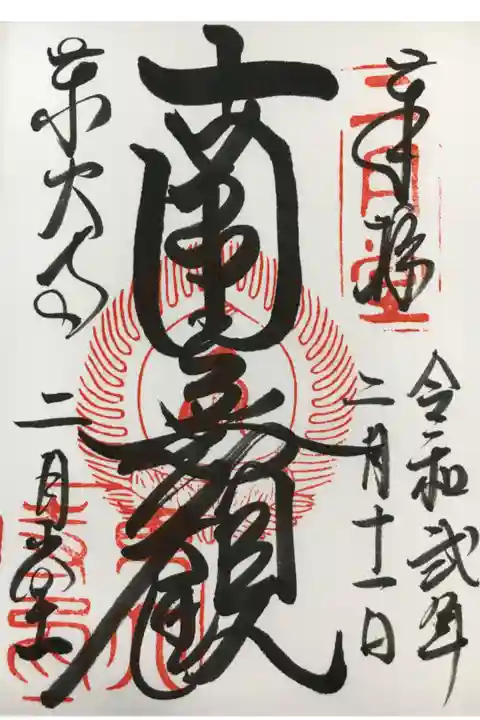 奉拝
二月堂
令和弐年
二月十一日
南無觀
東大寺
二月堂